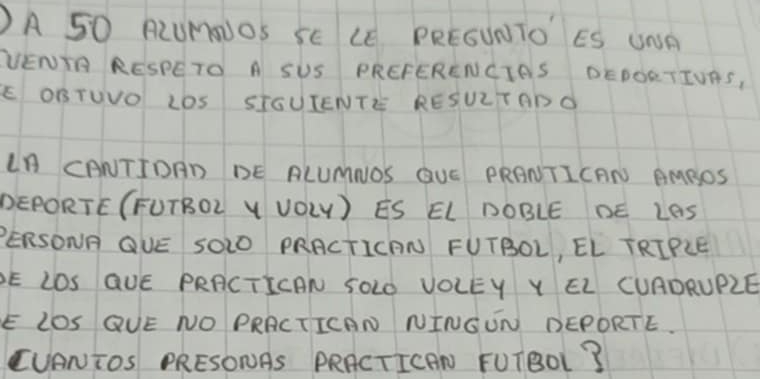 ) A 50 ALUMNOS SE LE PREGUNTO ES UNA
VENTA RESPETO A SUS PREFERENCIAS DEPORTIVAS,
E OBTUVO LOS SIGUIENTE RESULTADO
LA CANTIDAD DE ALUMNOS QUE PRANTICAN AMBOS
DEPORTE (FUTBOL Y VOLY) ES EL DOBLE DE LAS
PERSONA QUE SOLO PRACTICAN FUTBOL, EL TRIPLE
DE LOS QUE PRACTICAN SOLO VOLEY Y EL CUADRUPLE
E LOS QUE NO PRACTICAN NINGÚN DEPORTE.
CUANTOS PRESONAS PRACTICAN FUTBOL?